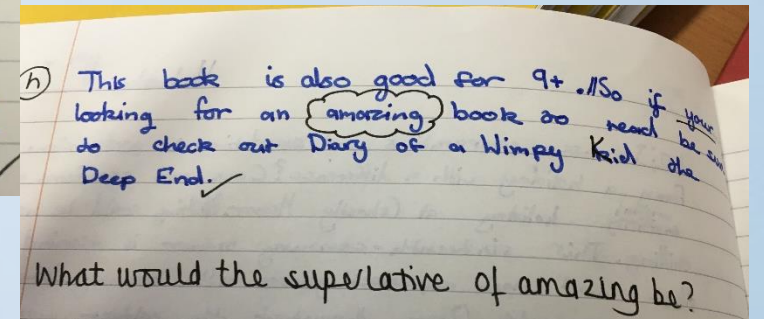 h) This book is also good for 9+ .//So if your
looking for an amazing book to read be sure
to check out Diary of a Wimpey Keid the
Deep End. ✓
What would the superlative of amazing be?